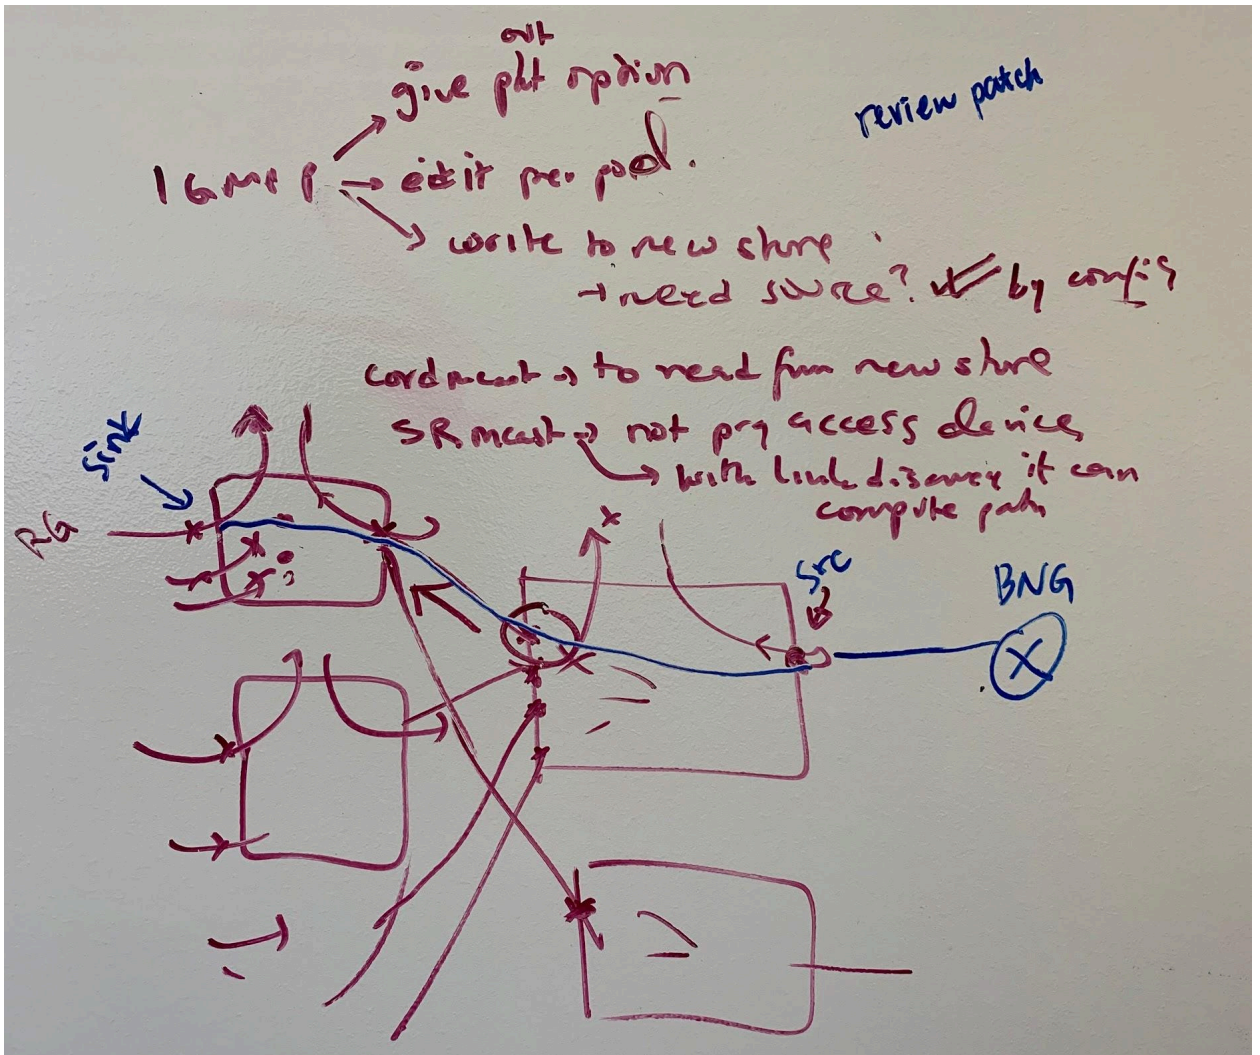 out
give pkt option
review patch
IGMPP
edit per pod.
write to new store
→ need source? ✓ by config
cordmcast → to read from new store
SR mcast → not prg access device
→ with link discovery it can
compute path
sink
RG
src
BNG